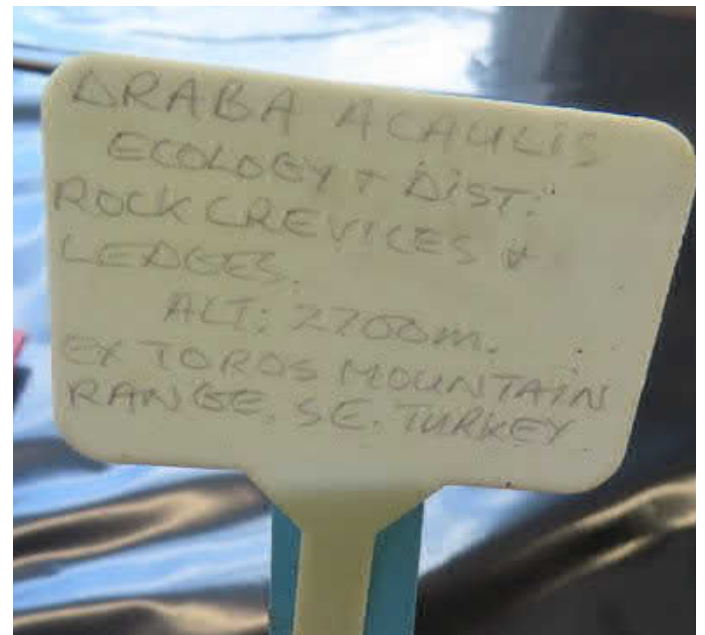 DRABA ACAULIS
ECOLOGY + DIST:
ROCK CREVICES &
LEDGES.
ALT: 2700m.
EX TOROS MOUNTAIN
RANGE, S.E. TURKEY